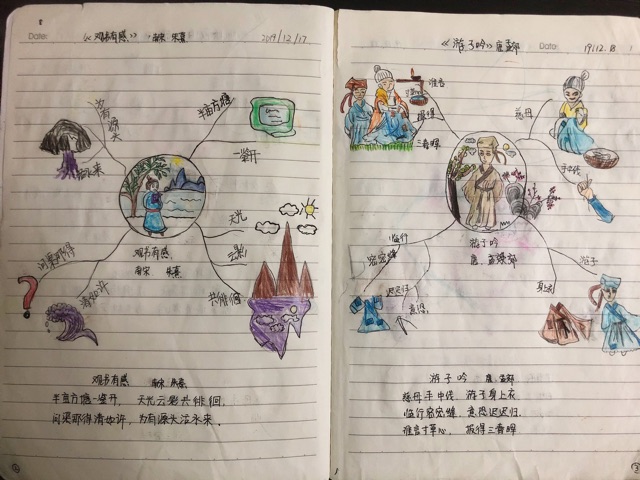 Date:
《观书有感》 南宋 朱熹 2019/12/17
为有源头
活水来
半亩方塘
一鉴开
天光
云影
共徘徊
问渠那得
清如许
观书有感
南宋 朱熹
观书有感 南宋 朱熹
半亩方塘一鉴开，天光云影共徘徊，
问渠那得清如许，为有源头活水来。
《游子吟》唐 孟郊 Date: 19/12.18
谁言
三春晖
慈母
手中线
临行
密密缝
迟迟归
意恐
游子
身上衣
游子吟
唐 孟郊
游子吟 唐 孟郊
慈母手中线 游子身上衣
临行密密缝 意恐迟迟归
谁言寸草心， 报得三春晖